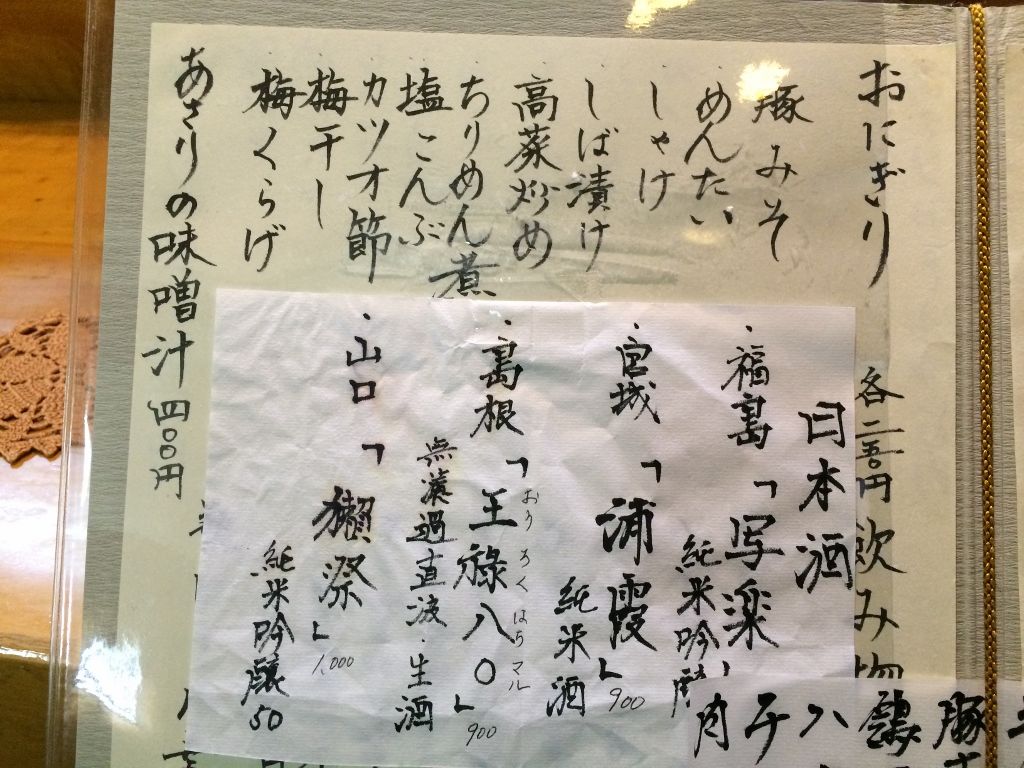 おにぎり 各二五〇円
豚みそ
めんたい
しゃけ
しば漬け
高菜炒め
ちりめん煮
塩こんぶ
カツオ節
梅干し
梅くらげ
あさりの味噌汁 四〇〇円
飲み物
日本酒
・福島「写楽」
純米吟醸
・宮城「浦霞」900
純米酒
・島根「王祿八〇」900
おうろくはちマル
無濾過直汲・生酒
・山口「獺祭」1,000
純米吟醸50